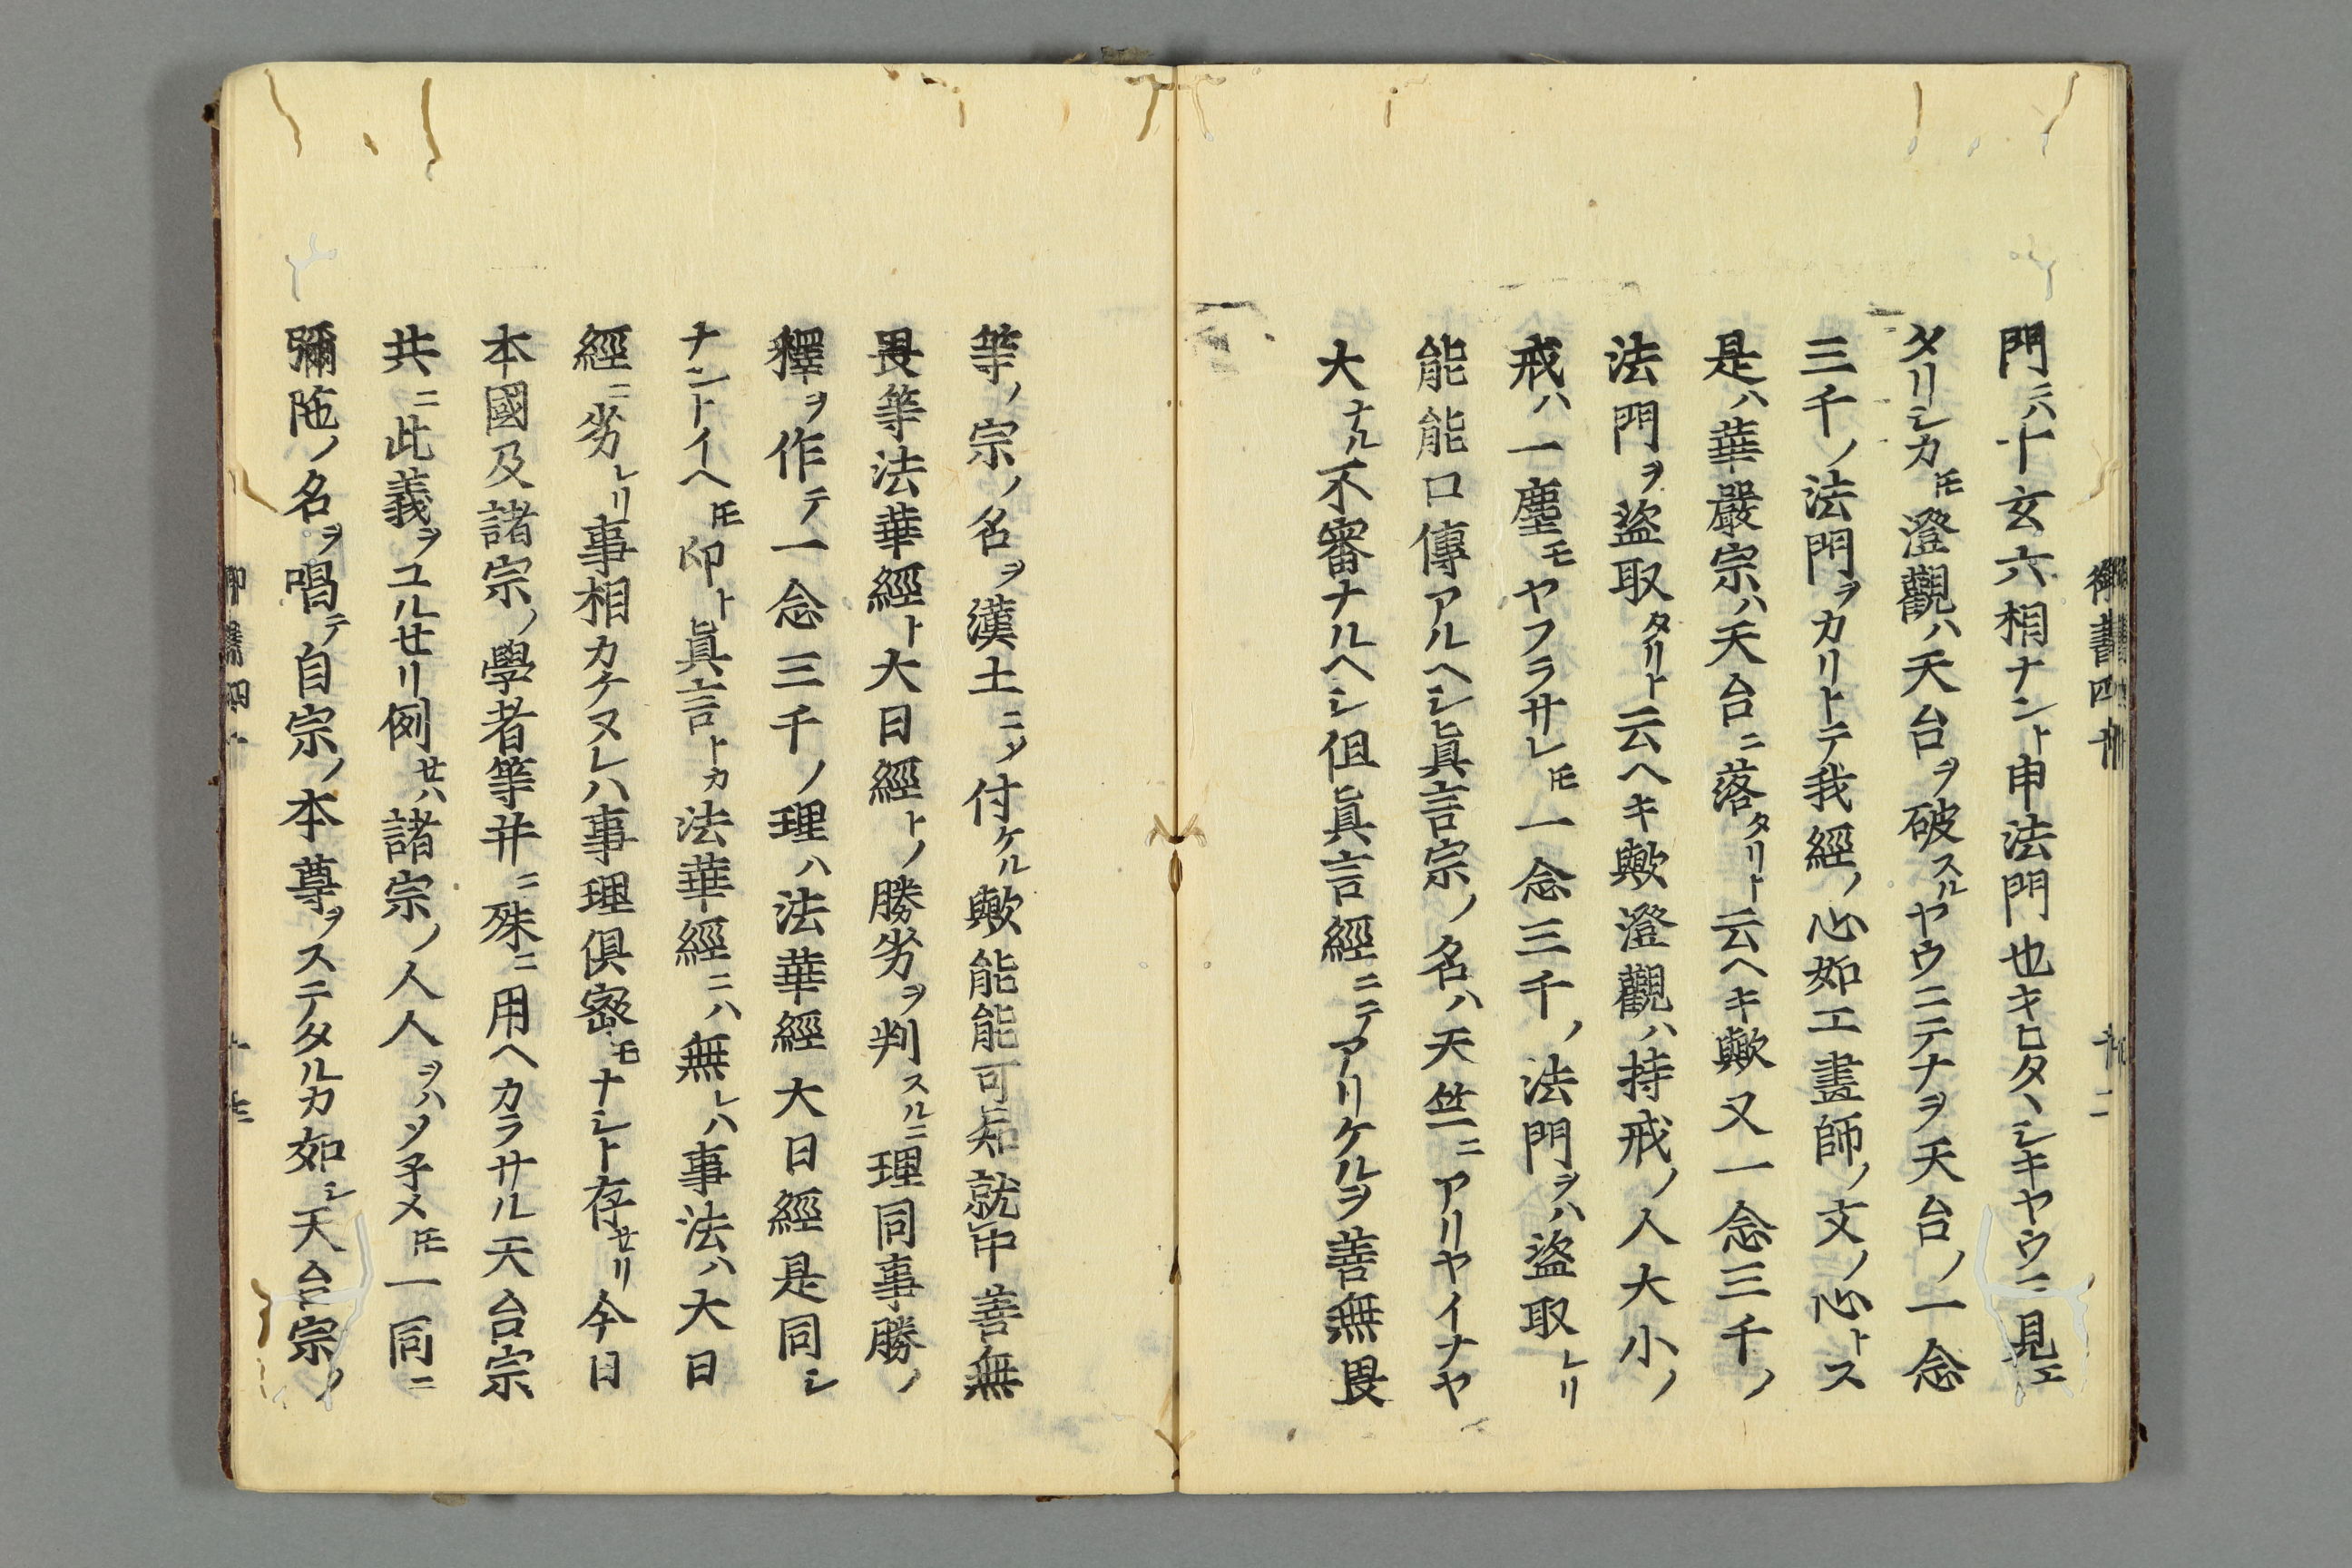 門ニハ十玄六相ナント申法門也キロタヽシキヤウニ見エ
タリシカ𪜈澄觀ハ天台ヲ破スルヤウニテナヲ天台ノ一念
三千ノ法門ヲカリトテ我經ノ心如工畫師ノ文ノ心トス
是ハ華嚴宗ハ天台ニ落タリト云ヘキ歟又一念三千ノ
法門ヲ盜取タリト云ヘキ歟澄觀ハ持戒ノ人大小ノ
戒ハ一塵モヤフラサレ𪜈一念三千ノ法門ヲハ盜取レリ
能能口傳アルヘシ眞言宗ノ名ハ天竺ニアリヤイナヤ
大ナル不審ナルヘシ但眞言經ニテアリケルヲ善無畏
等ノ宗ノ名ヲ漢土ニメ付ケル歟能能可知就中善無
畏等法華經ト大日經トノ勝劣ヲ判スルニ理同事勝ノ
釋ヲ作テ一念三千ノ理ハ法華經大日經是同シ
ナントイヘ𪜈印ト眞言トカ法華經ニハ無レハ事法ハ大日
經ニ劣レリ事相カケヌレハ事理倶宻モナシト存セリ今日
本國及諸宗ノ學者等并ニ殊ニ用ヘカラサル天台宗
共ニ此義ヲユルセリ例セハ諸宗ノ人人ヲハソ子メ𪜈一同ニ
彌陁ノ名ヲ唱テ自宗ノ本尊ヲステタルカ如シ天台宗ノ
御書四十